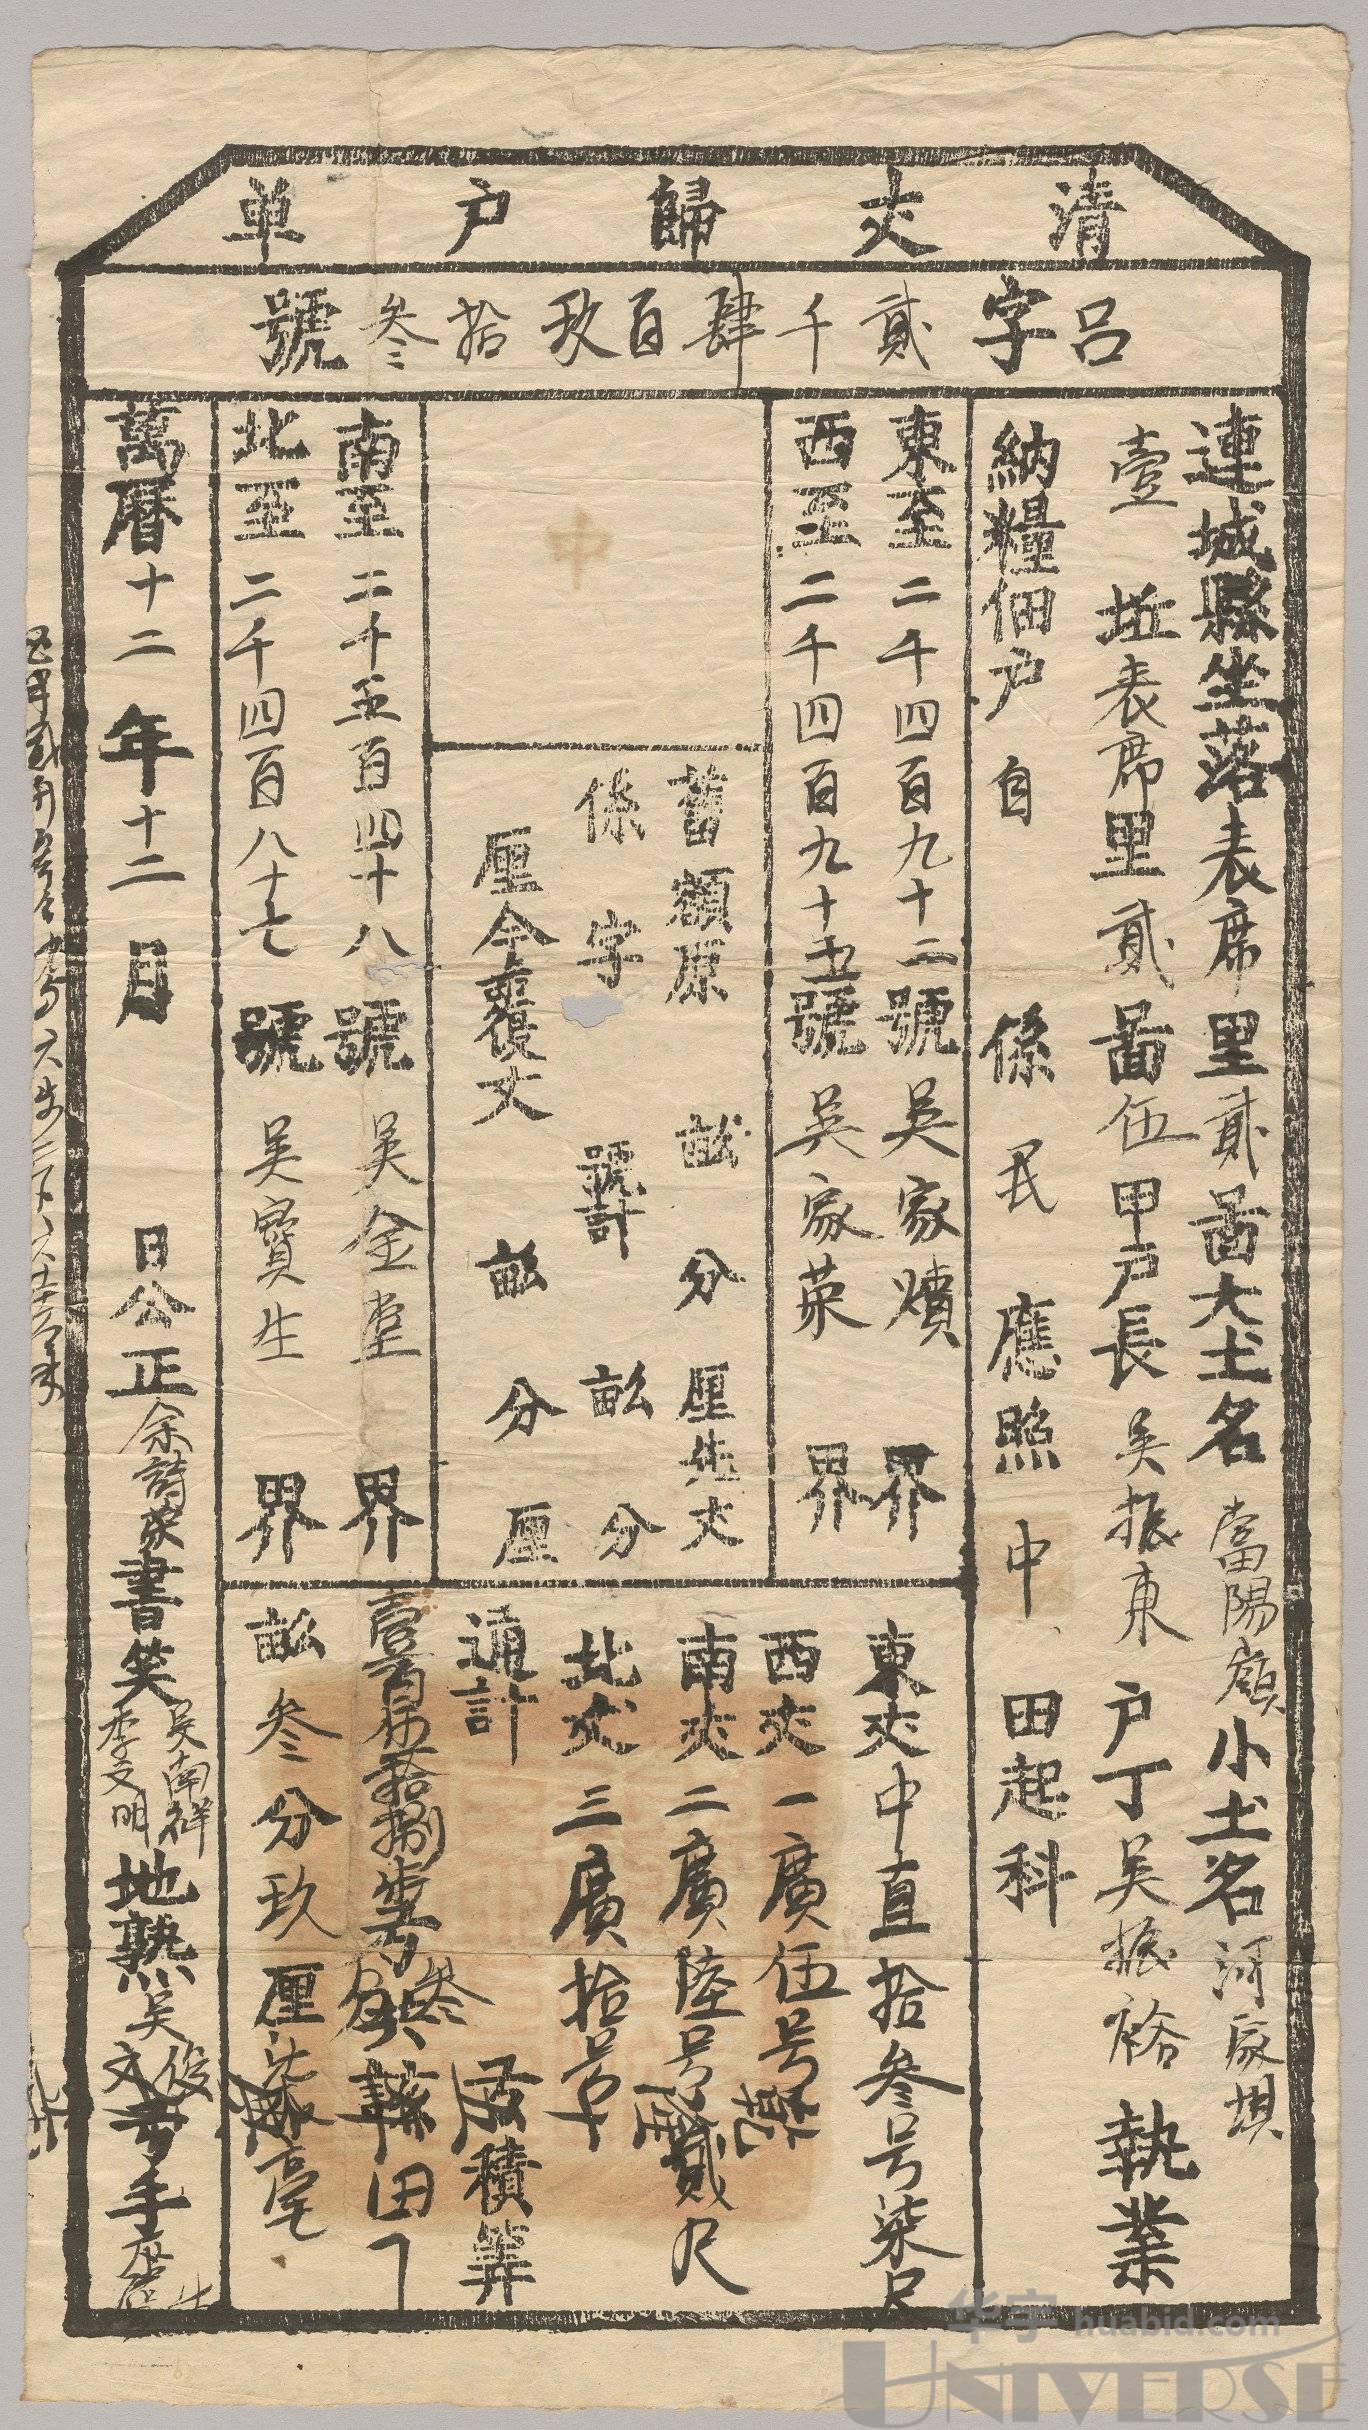 清丈歸户单
吕字貳千肆百玖拾叁號
連城縣坐落表席里貳啚大土名當陽嶺小土名河家垻
壹坵表席里貳啚伍甲户長吴振東户丁吴振裕執業
納糧佃户自係民應照中田起科
東至二千四百九十二號吴家
界
西至二千四百九十五號吴家荣
界
中
舊額原畝分厘先丈
係字號計畝分
厘今覆丈畝分厘
南至二千五百四十八號吴金堂
界
北至二千四百八十七號吴寳生
界
東丈中直拾叁号柒尺
西丈一廣伍号
南丈二廣陸号貳尺
北丈三廣拾号
通計積筭
壹百伍拾捌步田
畝叁分玖厘毫
萬曆十二年十二月日公正余書筭吴南祥
李文明
地熟吴文俊弓手
华宇 huabid.com
UNIVERSE